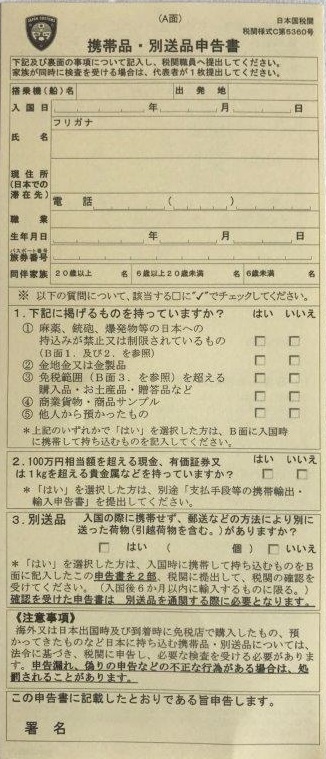 (A面)
日本国税関
税関様式C第5360号
携帯品・別送品申告書
下記及び裏面の事項について記入し、税関職員へ提出してください。
家族が同時に検査を受ける場合は、代表者が1枚提出してください。
搭乗機(船)名 出発地
入国日 年 月 日
フリガナ
氏名
現住所
(日本での
滞在先)
電話 ( )
職業
生年月日 年 月 日
パスポート番号
旅券番号
同伴家族 20歳以上 名 6歳以上20歳未満 名 6歳未満 名
※ 以下の質問について、該当する□に"✓"でチェックしてください。
1.下記に掲げるものを持っていますか? はい いいえ
① 麻薬、銃砲、爆発物等の日本への
持込みが禁止又は制限されているもの
(B面1.及び2.を参照)
② 金地金又は金製品
③ 免税範囲(B面3.を参照)を超える
購入品・お土産品・贈答品など
④ 商業貨物・商品サンプル
⑤ 他人から預かったもの
*上記のいずれかで「はい」を選択した方は、B面に入国時
に携帯して持ち込むものを記入してください。
2.100万円相当額を超える現金、有価証券又
は1kgを超える貴金属などを持っていますか? はい いいえ
*「はい」を選択した方は、別途「支払手段等の携帯輸出・
輸入申告書」を提出してください。
3.別送品 入国の際に携帯せず、郵送などの方法により別に
送った荷物(引越荷物を含む。)がありますか?
□ はい ( 個) □ いいえ
*「はい」を選択した方は、入国時に携帯して持ち込むものをB
面に記入したこの申告書を2部、税関に提出して、税関の確認を
受けてください。(入国後6か月以内に輸入するものに限る。)
確認を受けた申告書は 別送品を通関する際に必要となります。
《注意事項》
海外又は日本出国時及び到着時に免税店で購入したもの、預
かってきたものなど日本に持ち込む携帯品・別送品については、
法令に基づき、税関に申告し、必要な検査を受ける必要がありま
す。申告漏れ、偽りの申告などの不正な行為がある場合は、処
罰されることがあります。
この申告書に記載したとおりである旨申告します。
署名